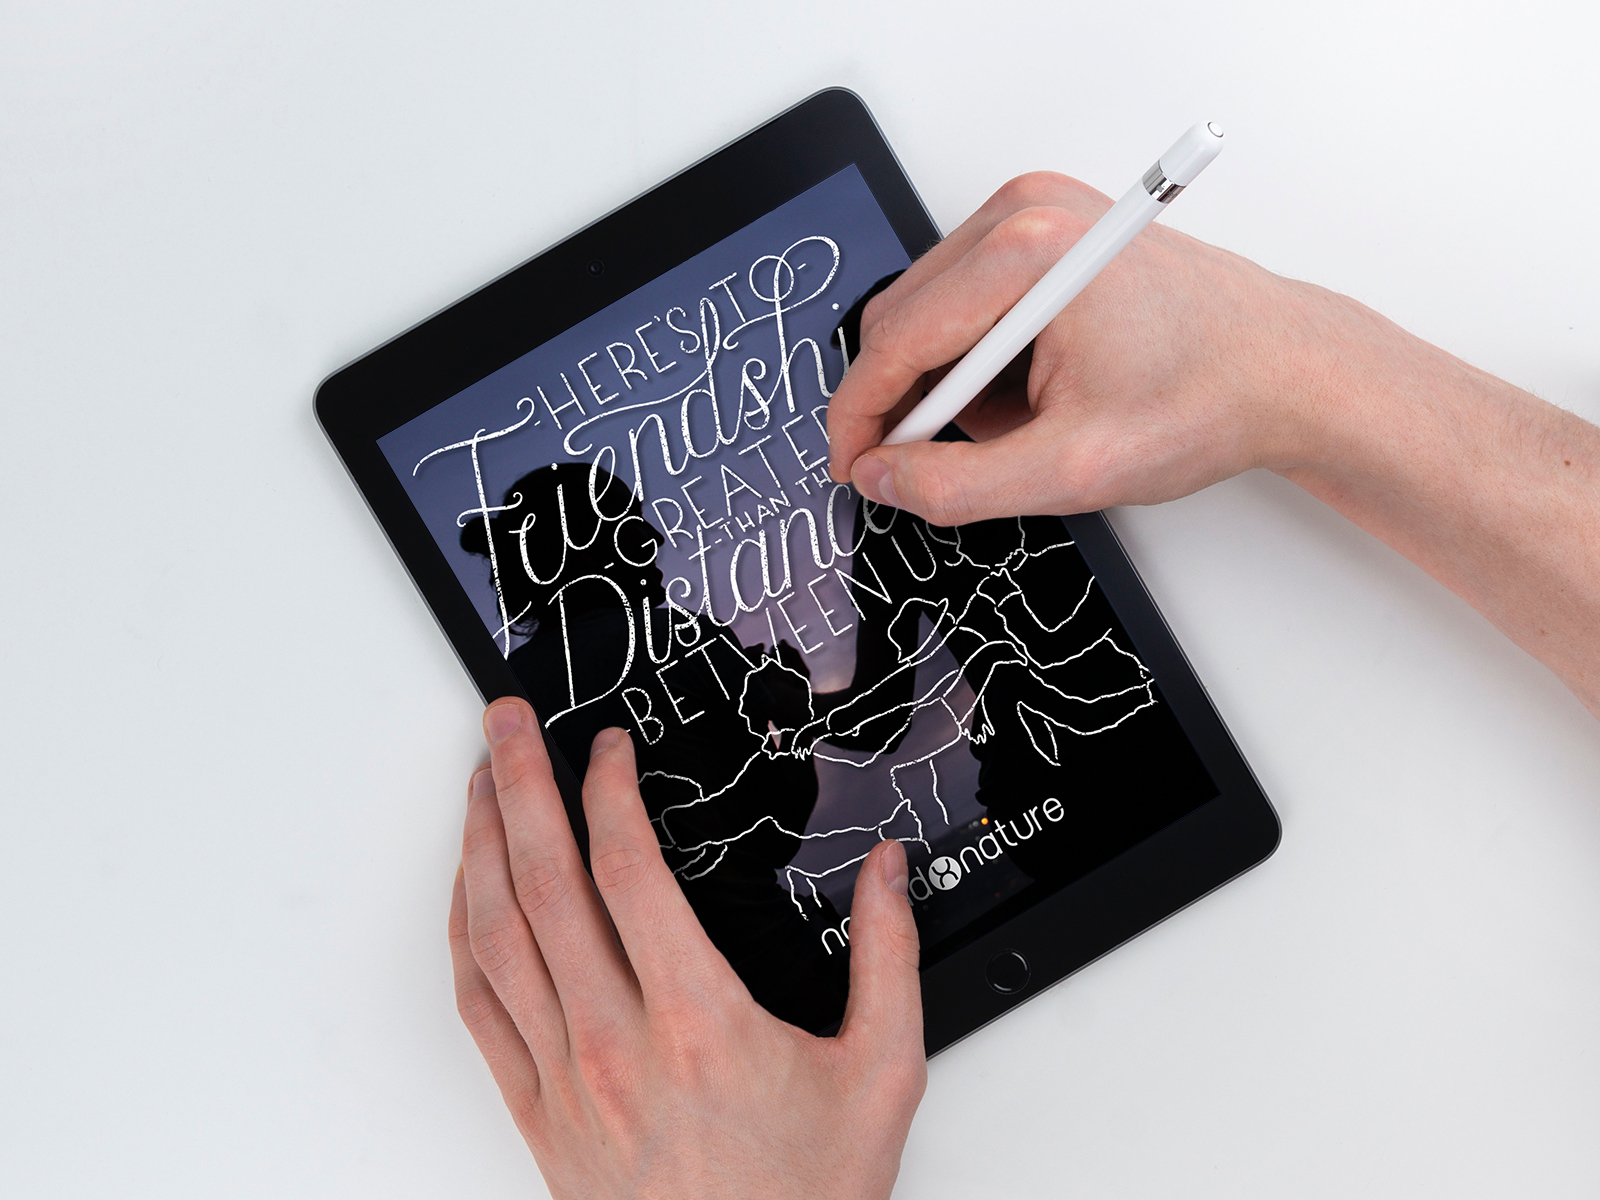 -HERE'S TO-
Friendshi
GREATER
-THAN TH
Distance
-BETWEEN U
nature